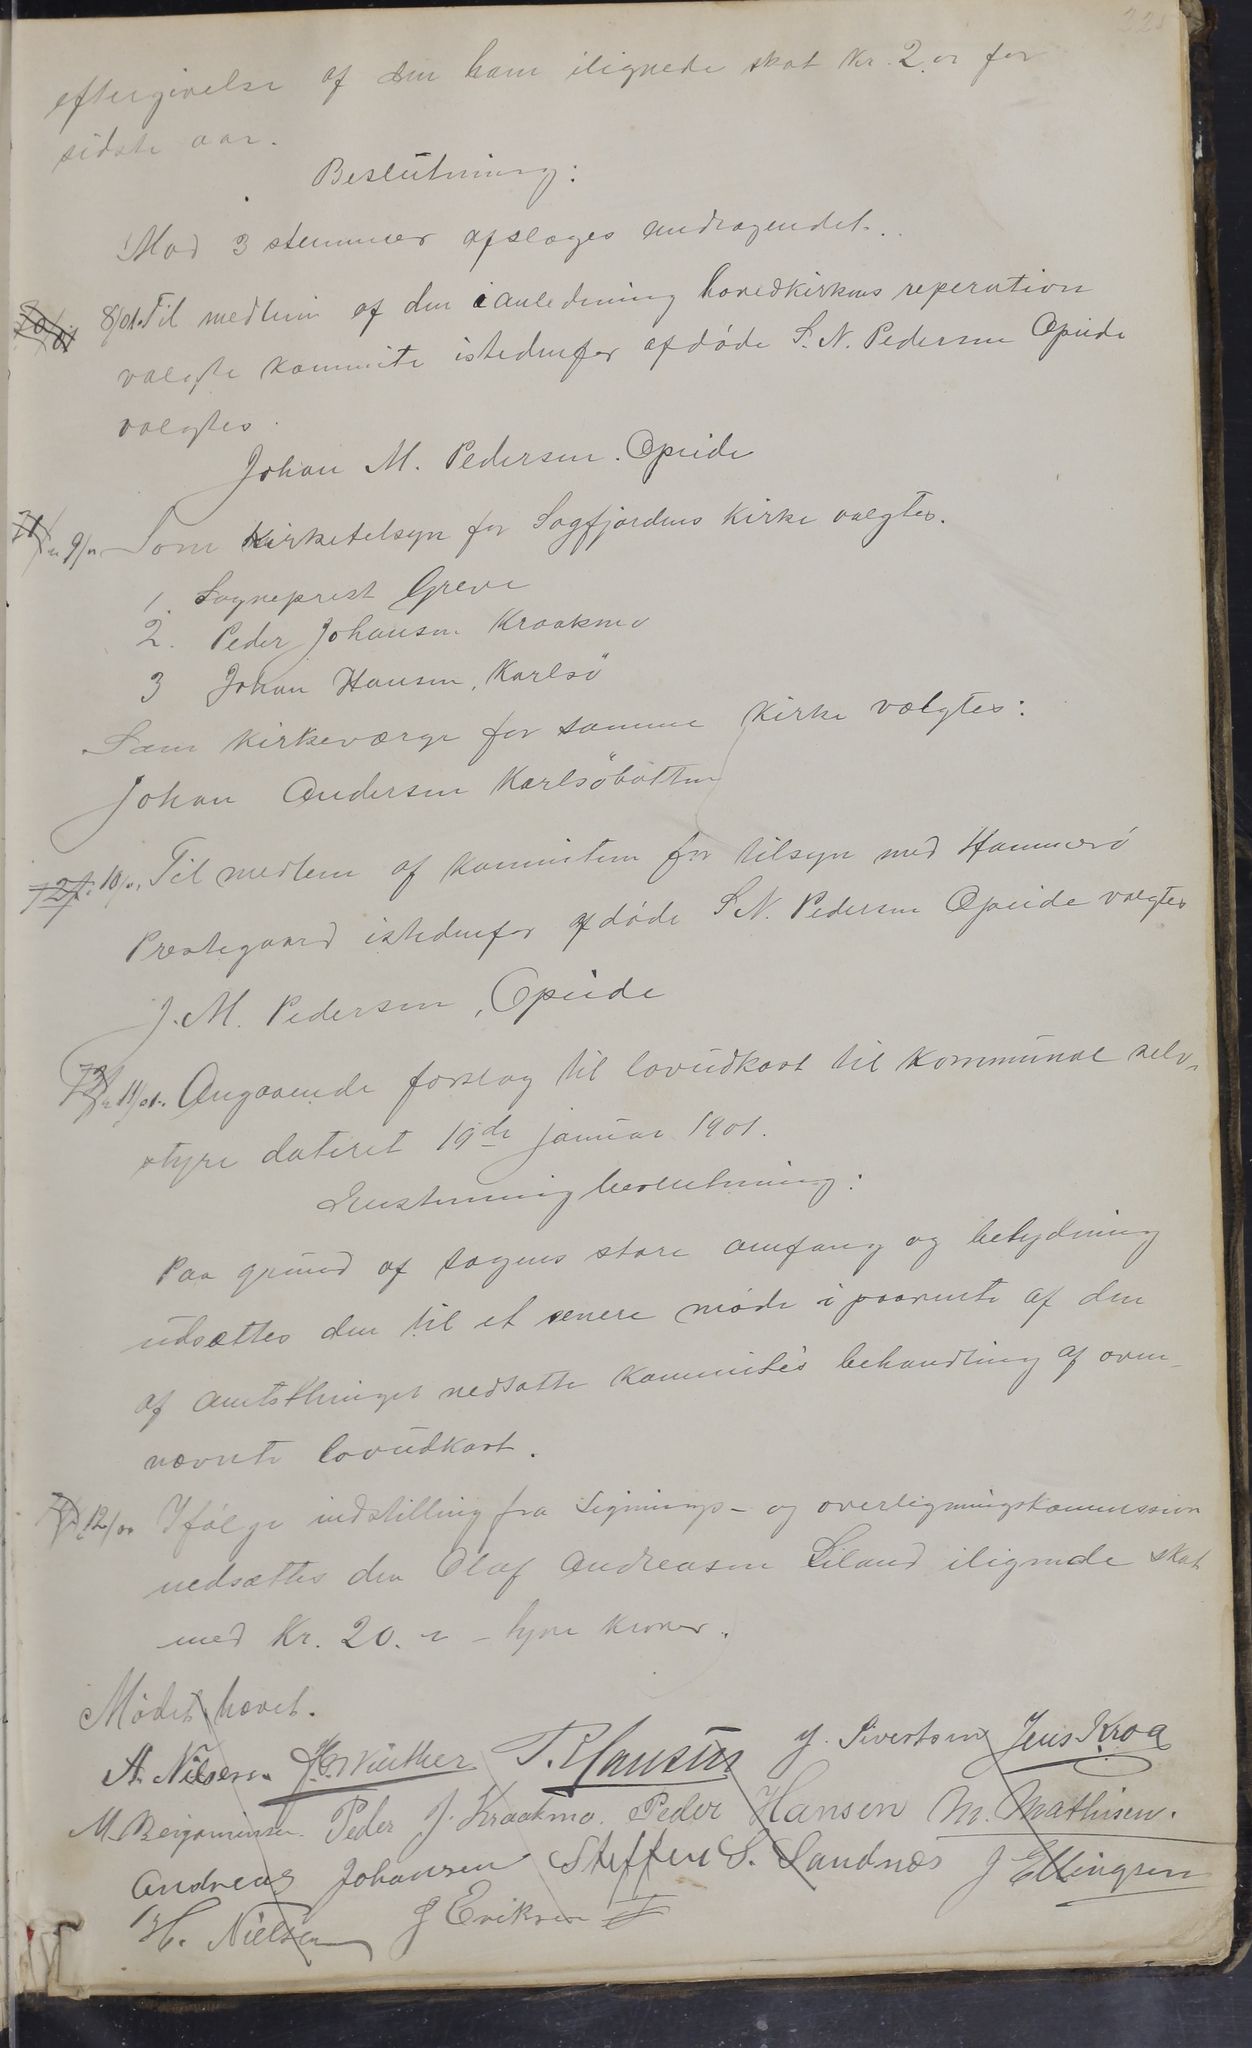 eftergivelse af den ham ilignede skat Kr. 2.00 for
sidste aar.
Beslutning:
Mod 3 stemmer afsloges andragendet.
8/01. Til medlem af den i anledning hovedkirkens reperation
valgte kommite istedenfor afdøde S. N. Pedersen Opeide
valgtes.
Johan M. Pedersen. Opeide
9/01 Som Kirketelsyn for Sagfjordens Kirke valgtes.
1. Sogneprest Greve
2. Peder Johansen Kraakmo
3 Johan Hansen, Karlsö
Som kirkeværge for samme kirke valgtes:
Johan Andersen Karlsöbotten
10/01. Til medlem af kommiteen for tilsyn med Hammerö
Prestegaard istedenfor afdøde S N. Pedersen Opeide valgtes
J. M. Pedersen, Opeide
11/01. Angaaende forslag til lovudkast til kommunal selv-
styre dateret 19de januar 1901.
Enstemmig beslutning:
Paa grund af sagens store omfang og betydning
udsættes den til et senere møde i paavente af den
af amtsthinget nedsatte kommite's behandling af oven-
nævnte lovudkast.
12/01 Ifølge indstilling fra Lignings- og overligningskommission
nedsættes den Olaf Andreasen Liland ilignede skat
med Kr. 20. - tyve kroner.
Mødet hævet.
A. Nilsen. J. C. Winther P. Hansen J. Sivertsen Jens Kroa
M. Benjaminsen. Peder J. Kraakmo. Peder Hansen M. Mathisen.
Andreas Johansen Steffen S. Sandnæs J Ellingsen
H. Nielsen J Eriksen